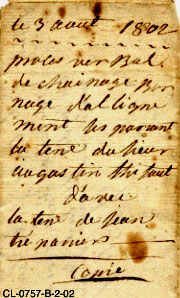 le 3 aout 1802
proces verbal
de chainage Bor
nage d'aligne
ment les parant
la tere du sieur
augustin thifaut
D'avec
la tere de Jean
trépanier
Copie
CL-0757-B-2-02